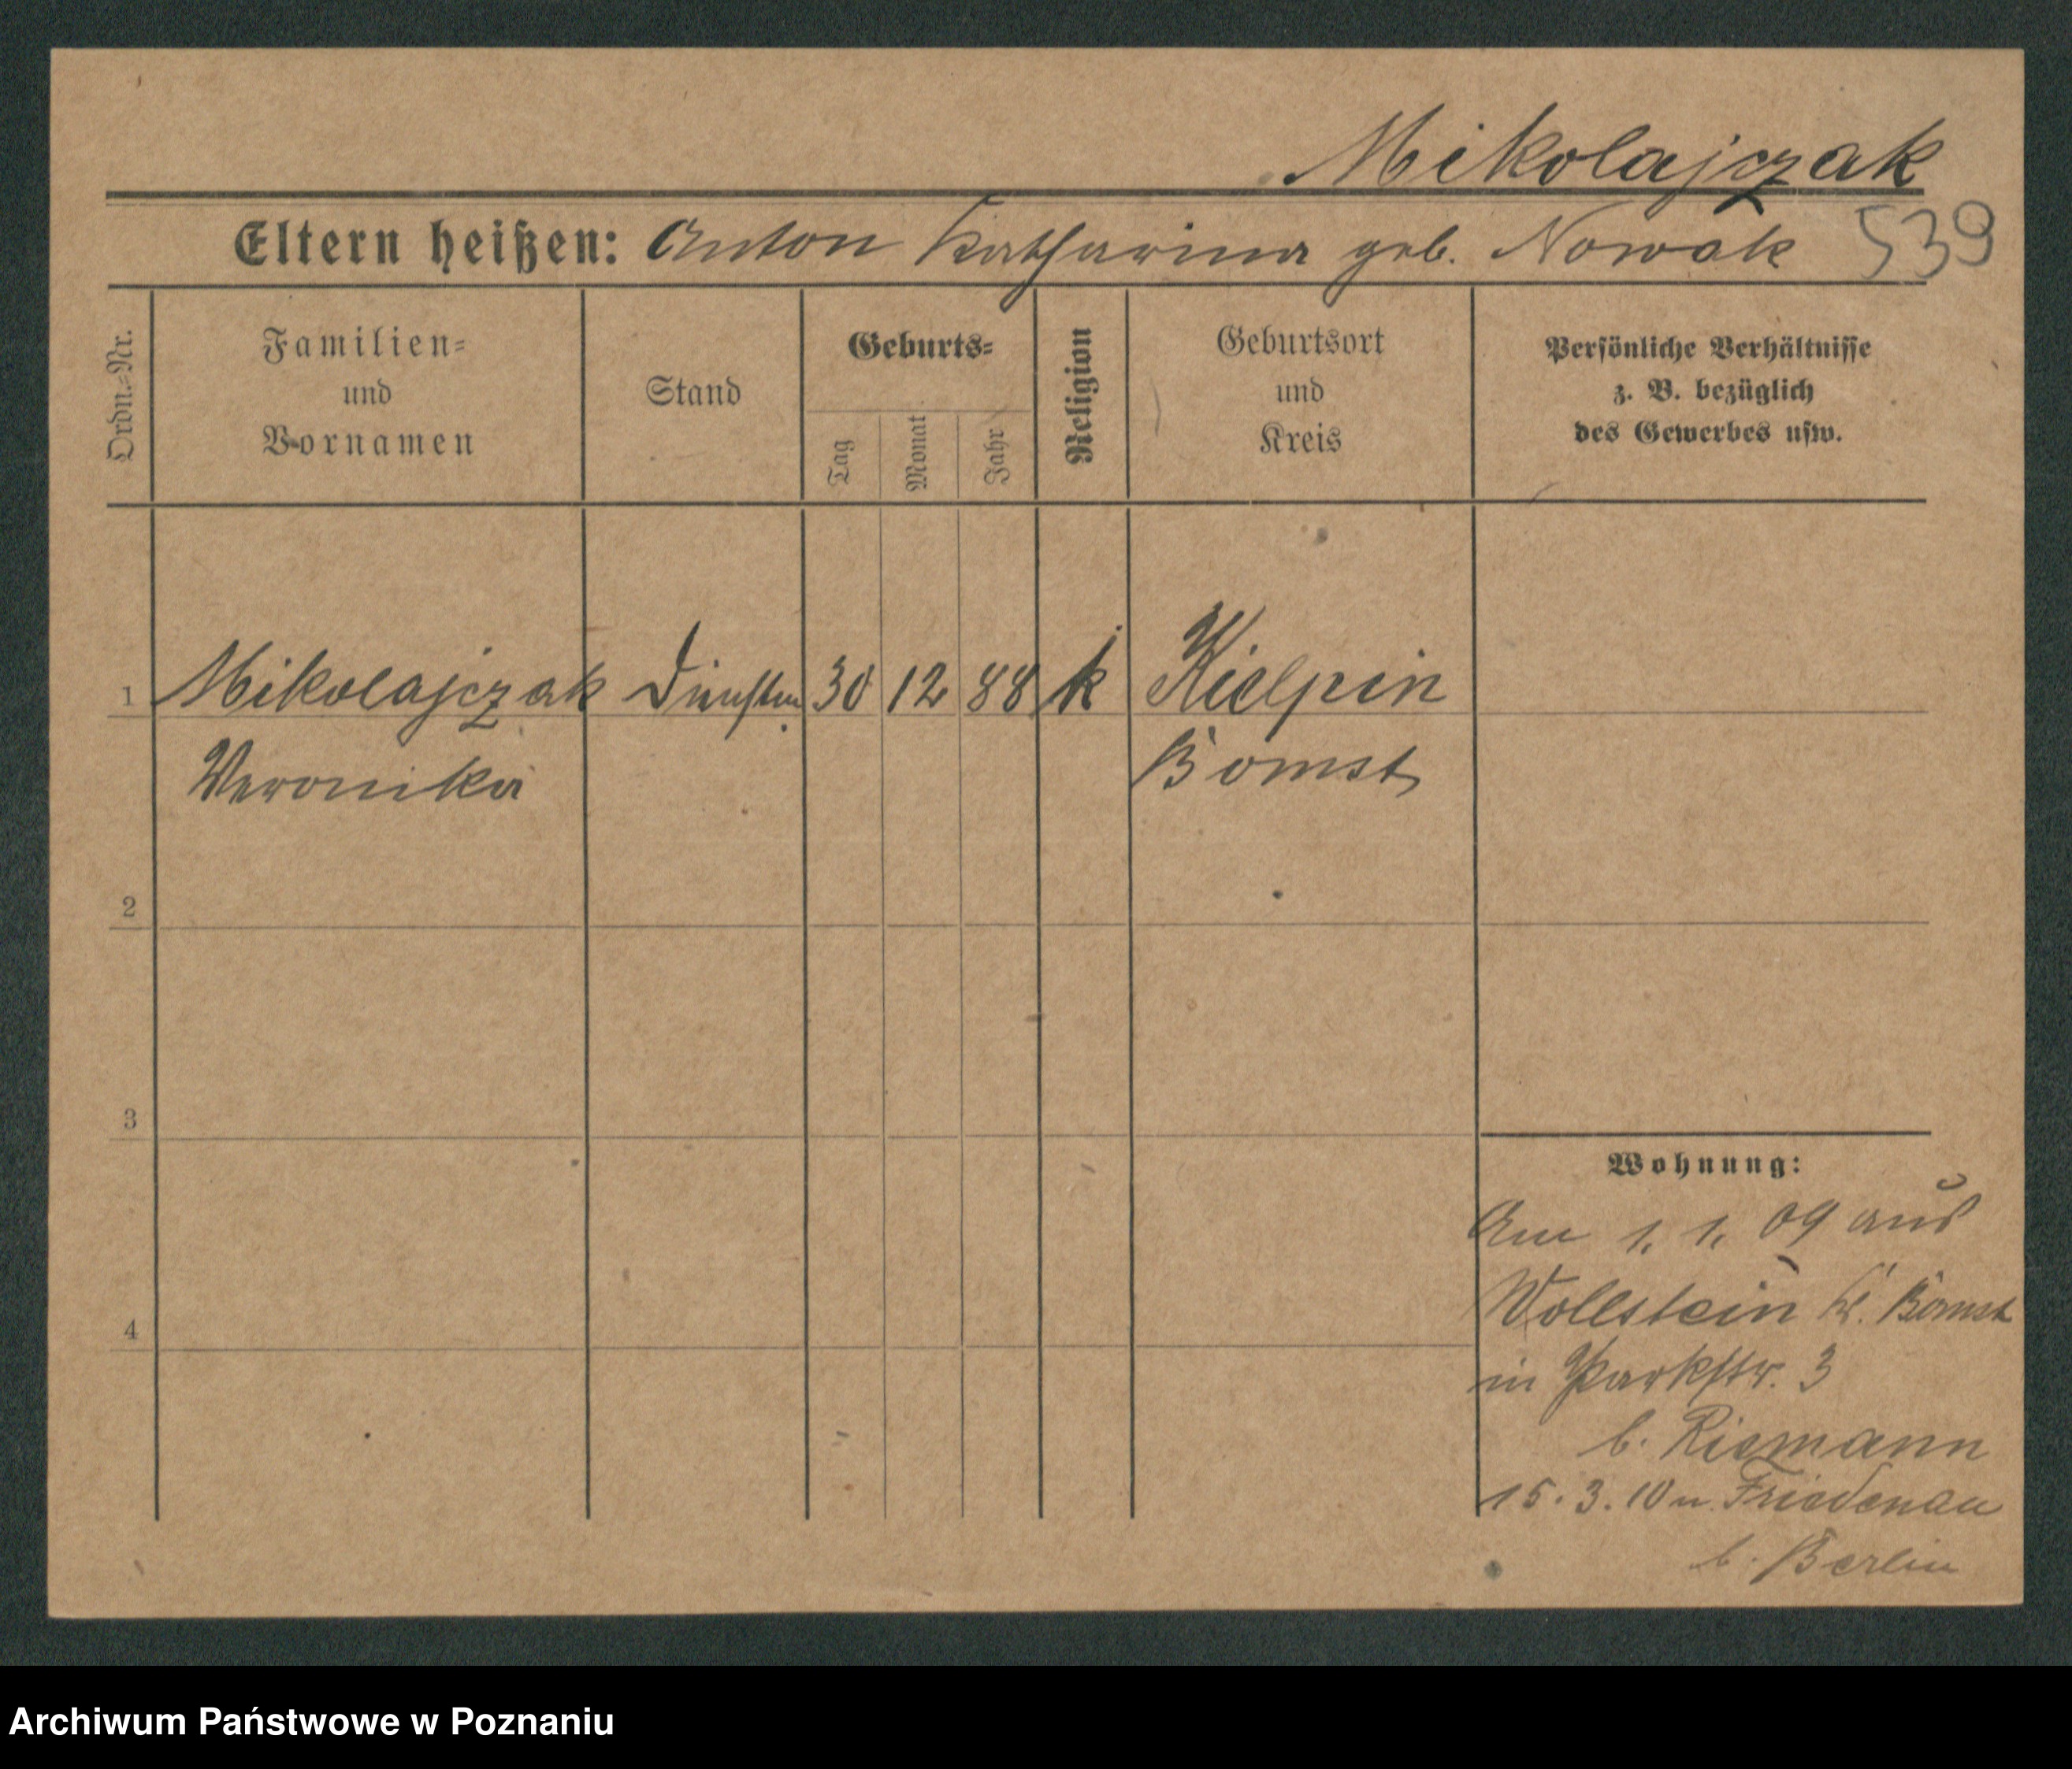 Mikolajczak
Eltern heißen: Anton Katharina geb. Nowak 539
Ordn.-Nr.
Familien-
und
Vornamen
Stand
Geburts-
Tag
Monat
Jahr
Religion
Geburtsort
und
Kreis
Persönliche Verhältnisse
z. B. bezüglich
des Gewerbes usw.
1 Mikolajczak 30 12 88 k Kielpin
Veronika Bomst
2
3
4
Wohnung:
Am 1. 1. 09 aus
Wollstein Kr. Bomst
in Parkstr. 3
b. Riemann
15. 3. 10 n. Friedenau
b. Berlin
Archiwum Państwowe w Poznaniu